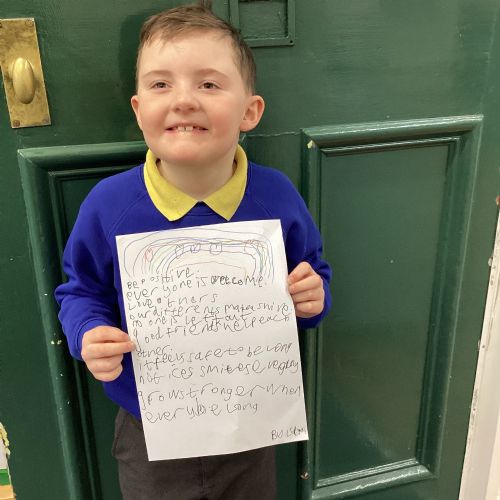 BE POSitive.
everyone is welcome.
Love others
our differents makes shine
no one is left out
good friends help each
other.
it feels safe to be
notices smiles every day
grow stronger when
everyone